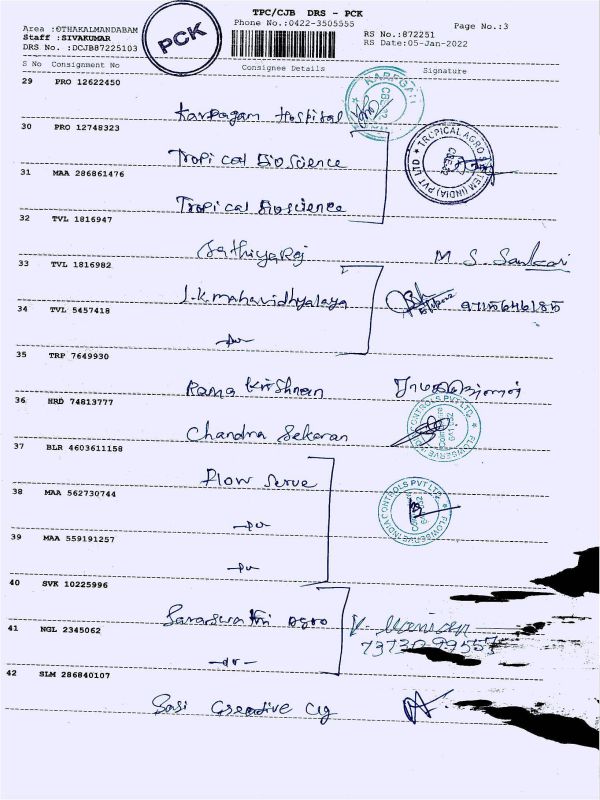 TPC/CJB DRS - PCK
Area :OTHAKALMANDABAM
Phone No.:0422-3505555
Page No.:3
Staff :SIVAKUMAR
PCK
RS No.:872251
DRS No. :DCJB87225103
RS Date:05-Jan-2022
S No Consignment No Consignee Details Signature
29 PRO 12622450
Karpagam Hospital
30 PRO 12748323
Tropical Bioscience
TROPICAL AGRO SYSTEM (INDIA) PVT LTD
31 MAA 286861476
Tropical Bioscience
32 TVL 1816947
Sathiyaraj M. S. Sankari
33 TVL 1816982
J.K mahavidhyalaya 9715646185
34 TVL 5457418
35 TRP 7649930
Rama Krishnan
36 HRD 74813777
Chandra Sekaran
FLOWSERVE INDIA CONTROLS PVT LTD
37 BLR 4603611158
Flow Serve
38 MAA 562730744
FLOWSERVE INDIA CONTROLS PVT LTD
39 MAA 559191257
40 SVK 10225996
Saraswathi Agro
41 NGL 2345062
42 SLM 286840107
Sasi Creative Clg